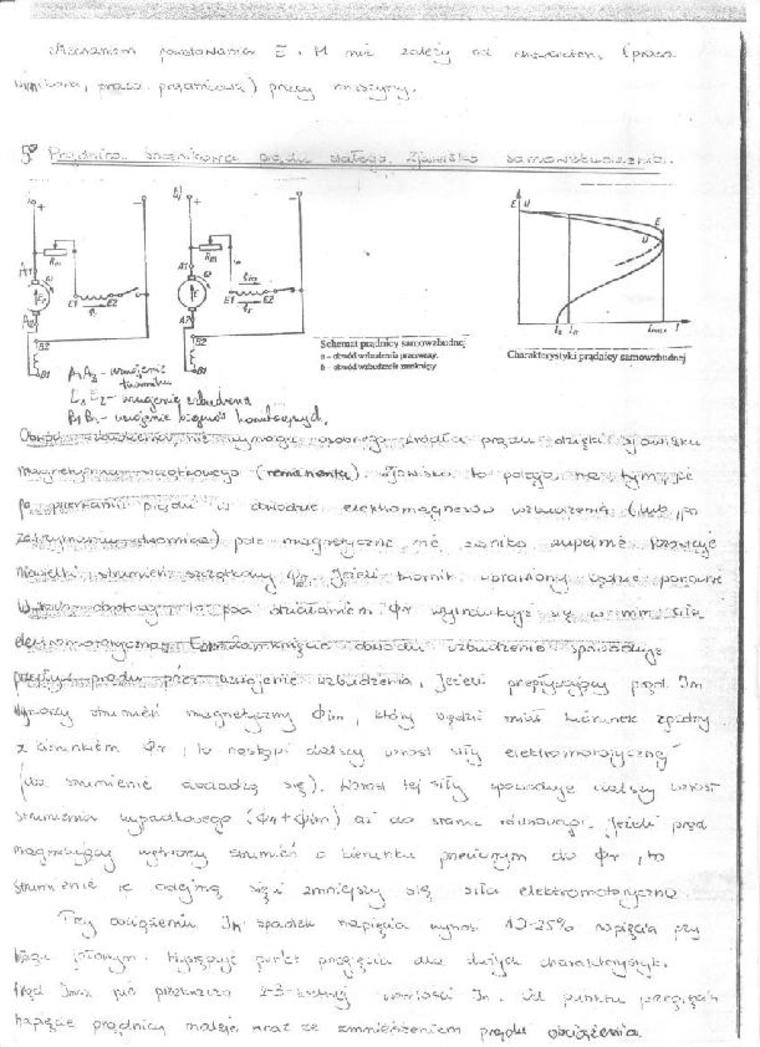 Mechanizm powstawania E i M nie zależy od charakteru (praca
prądnicowa) pracy maszyny.
5° Prądnica bocznikowa prądu stałego. Zjawisko samowzbudzenia.
+ − b) + −
E U
A1 E1 E2 A1 E1 E2
A2 A2
B2 B2
B1 B1
E U
Schemat prądnicy samowzbudnej
a – obwód wzbudzenia przerwany,
b – obwód wzbudzenia zamknięty
Charakterystyki prądnicy samowzbudnej
A1A2 – uzwojenie
twornika
E1E2 – uzwojenie wzbudzenia
B1B2 – uzwojenie biegunów komutacyjnych.
Obwód wzbudzenia nie wymaga osobnego źródła prądu dzięki zjawisku
magnetyzmu szczątkowego (remanentu). Zjawisko to polega na tym, że
po przerwaniu prądu w obwodzie elektromagnesów wzbudzenia (lub po
zatrzymaniu) pole magnetyczne nie zanika zupełnie. Pozostaje
niewielki strumień szczątkowy Φr. Jeżeli twornik będzie
to pod działaniem Φr wyindukuje się w nim siła
elektromotoryczna obwodu wzbudzenia spowoduje
przepływ prądu przez uzwojenie wzbudzenia. Jeżeli przepływający prąd Im
wytworzy strumień magnetyczny Φm, który będzie miał kierunek zgodny
z kierunkiem Φr, to nastąpi dalszy wzrost siły elektromotorycznej
(bo strumienie dodadzą się). Wzrost tej siły spowoduje dalszy wzrost
strumienia wypadkowego (Φr+Φm) aż do stanu równowagi. Jeżeli prąd
magnesujący wytworzy strumień o kierunku przeciwnym do Φr, to
strumienie te odejmą się i zmniejszy się siła elektromotoryczna.
Przy obciążeniu In spadek napięcia wynosi 10-25% napięcia przy
biegu jałowym. Występuje punkt przegięcia dla dużych charakterystyk.
Prąd Imax nie przekracza 2-3 wartości In. Od punktu przegięcia
napięcie prądnicy maleje wraz ze zmniejszeniem prądu obciążenia.